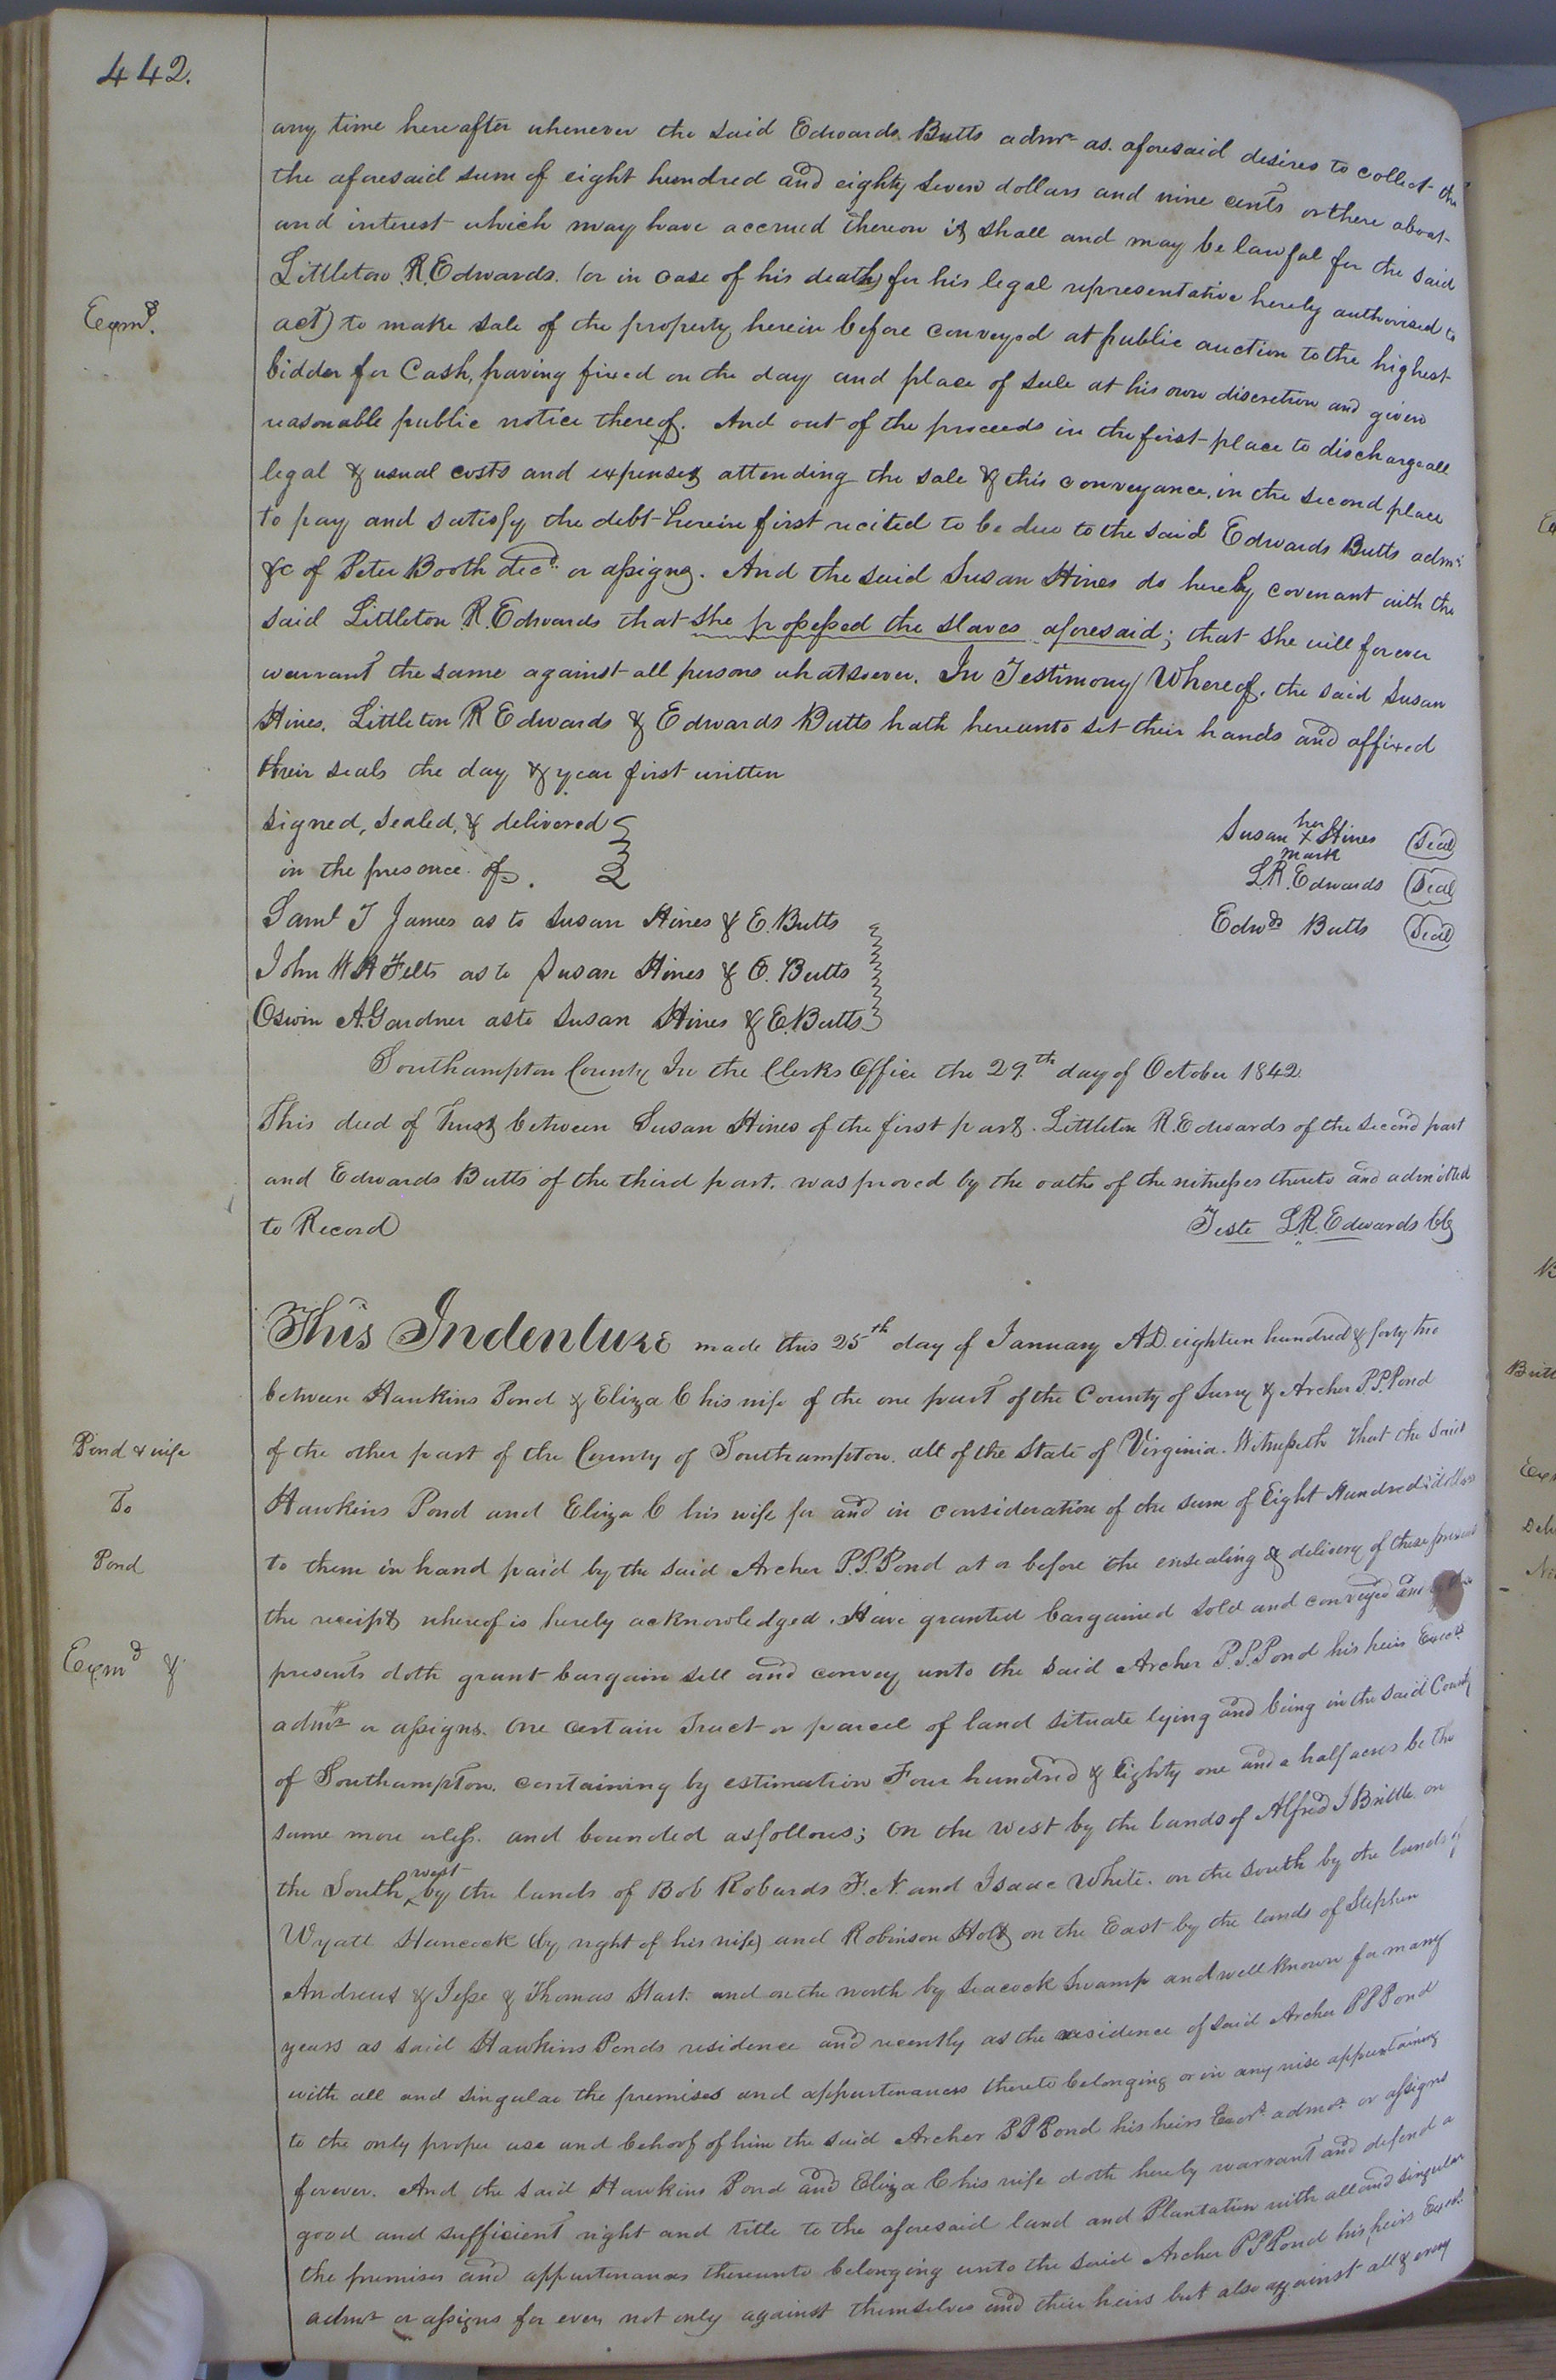 442.
any time hereafter whenever the said Edwards Butts admr as aforesaid desires to collect the
the aforesaid sum of eight hundred and eighty seven dollars and nine cents or there about
and interest which may have accrued thereon it shall and may be lawful for the said
Littleton R. Edwards. (or in case of his death) for his legal representative hereby authorised to
Exmd.
act) to make sale of the property herein before conveyed at public auction to the highest
bidder for Cash, having fixed on the day and place of sale at his own discretion and given
reasonable public notice thereof. And out of the proceeds in the first place to discharge all
legal & usual costs and expenses attending the sale & this conveyance, in the second place
to pay and satisfy the debt herein first recited to be due to the said Edwards Butts admr
&c of Peter Booth decd. or assigns. And the said Susan Hines do hereby covenant with the
said Littleton R. Edwards that she possessed the slaves aforesaid; that she will forever
warrant the same against all persons whatsoever. In Testimony Whereof, the said Susan
Hines, Littleton R Edwards & Edwards Butts hath hereunto set their hands and affixed
their seals the day & year first written
signed, sealed, & delivered
in the presence of
Susan her x mark Hines (Seal)
L.R. Edwards (Seal)
Edwds Butts (Seal)
Saml T James as to Susan Hines & E. Butts
John W H Felts as to Susan Hines & E. Butts
Oswin A. Gardner as to Susan Hines & E. Butts
Southampton County In the Clerks Office the 29th day of October 1842
This deed of Trust between Susan Hines of the first part. Littleton R. Edwards of the second part
and Edwards Butts of the third part. was proved by the oaths of the witnesses thereto and admitted
to Record
Teste L.R. Edwards Clk
This Indenture made this 25th day of January A.D. eighteen hundred & forty two
between Hawkins Pond & Eliza C his wife of the one part of the County of Surry & Archer P.P. Pond
Pond & wife
To
Pond
of the other part of the County of Southampton. all of the State of Virginia. Witnesseth That the said
Hawkins Pond and Eliza C his wife for and in consideration of the sum of Eight Hundred dollars
to them in hand paid by the said Archer P.P. Pond at or before the ensealing & delivery of these presents
the receipt whereof is hereby acknowledged. Have granted bargained sold and conveyed and by these
Exmd &
presents doth grant bargain sell and convey unto the said Archer P.P. Pond his heirs Execrs
admrs or assigns. One certain Tract or parcel of land situate lying and being in the said County
of Southampton. containing by estimation Four hundred & Eighty one and a half acres be the
same more or less. and bounded as follows; On the west by the lands of Alfred J Brittle on
the South west by the lands of Bob Robards F.N. and Isaac White. on the south by the lands of
Wyatt Hancock (by right of his wife) and Robinson Holt on the East by the lands of Stephen
Andrews & Jesse & Thomas Hart. and on the north by Seacock Swamp and well known for many
years as said Hawkins Ponds residence and recently as the residence of said Archer P P Pond
with all and singular the premises and appurtenances thereto belonging or in any wise appertaining
to the only proper use and behoof of him the said Archer P P Pond his heirs Exors. admrs or assigns
forever. And the said Hawkins Pond and Eliza C his wife doth hereby warrant and defend a
good and sufficient right and title to the aforesaid land and Plantation with all and singular
the premises and appurtenances thereunto belonging unto the said Archer P P Pond his heirs Execrs.
admr or assigns for ever not only against themselves and their heirs but also against all & every